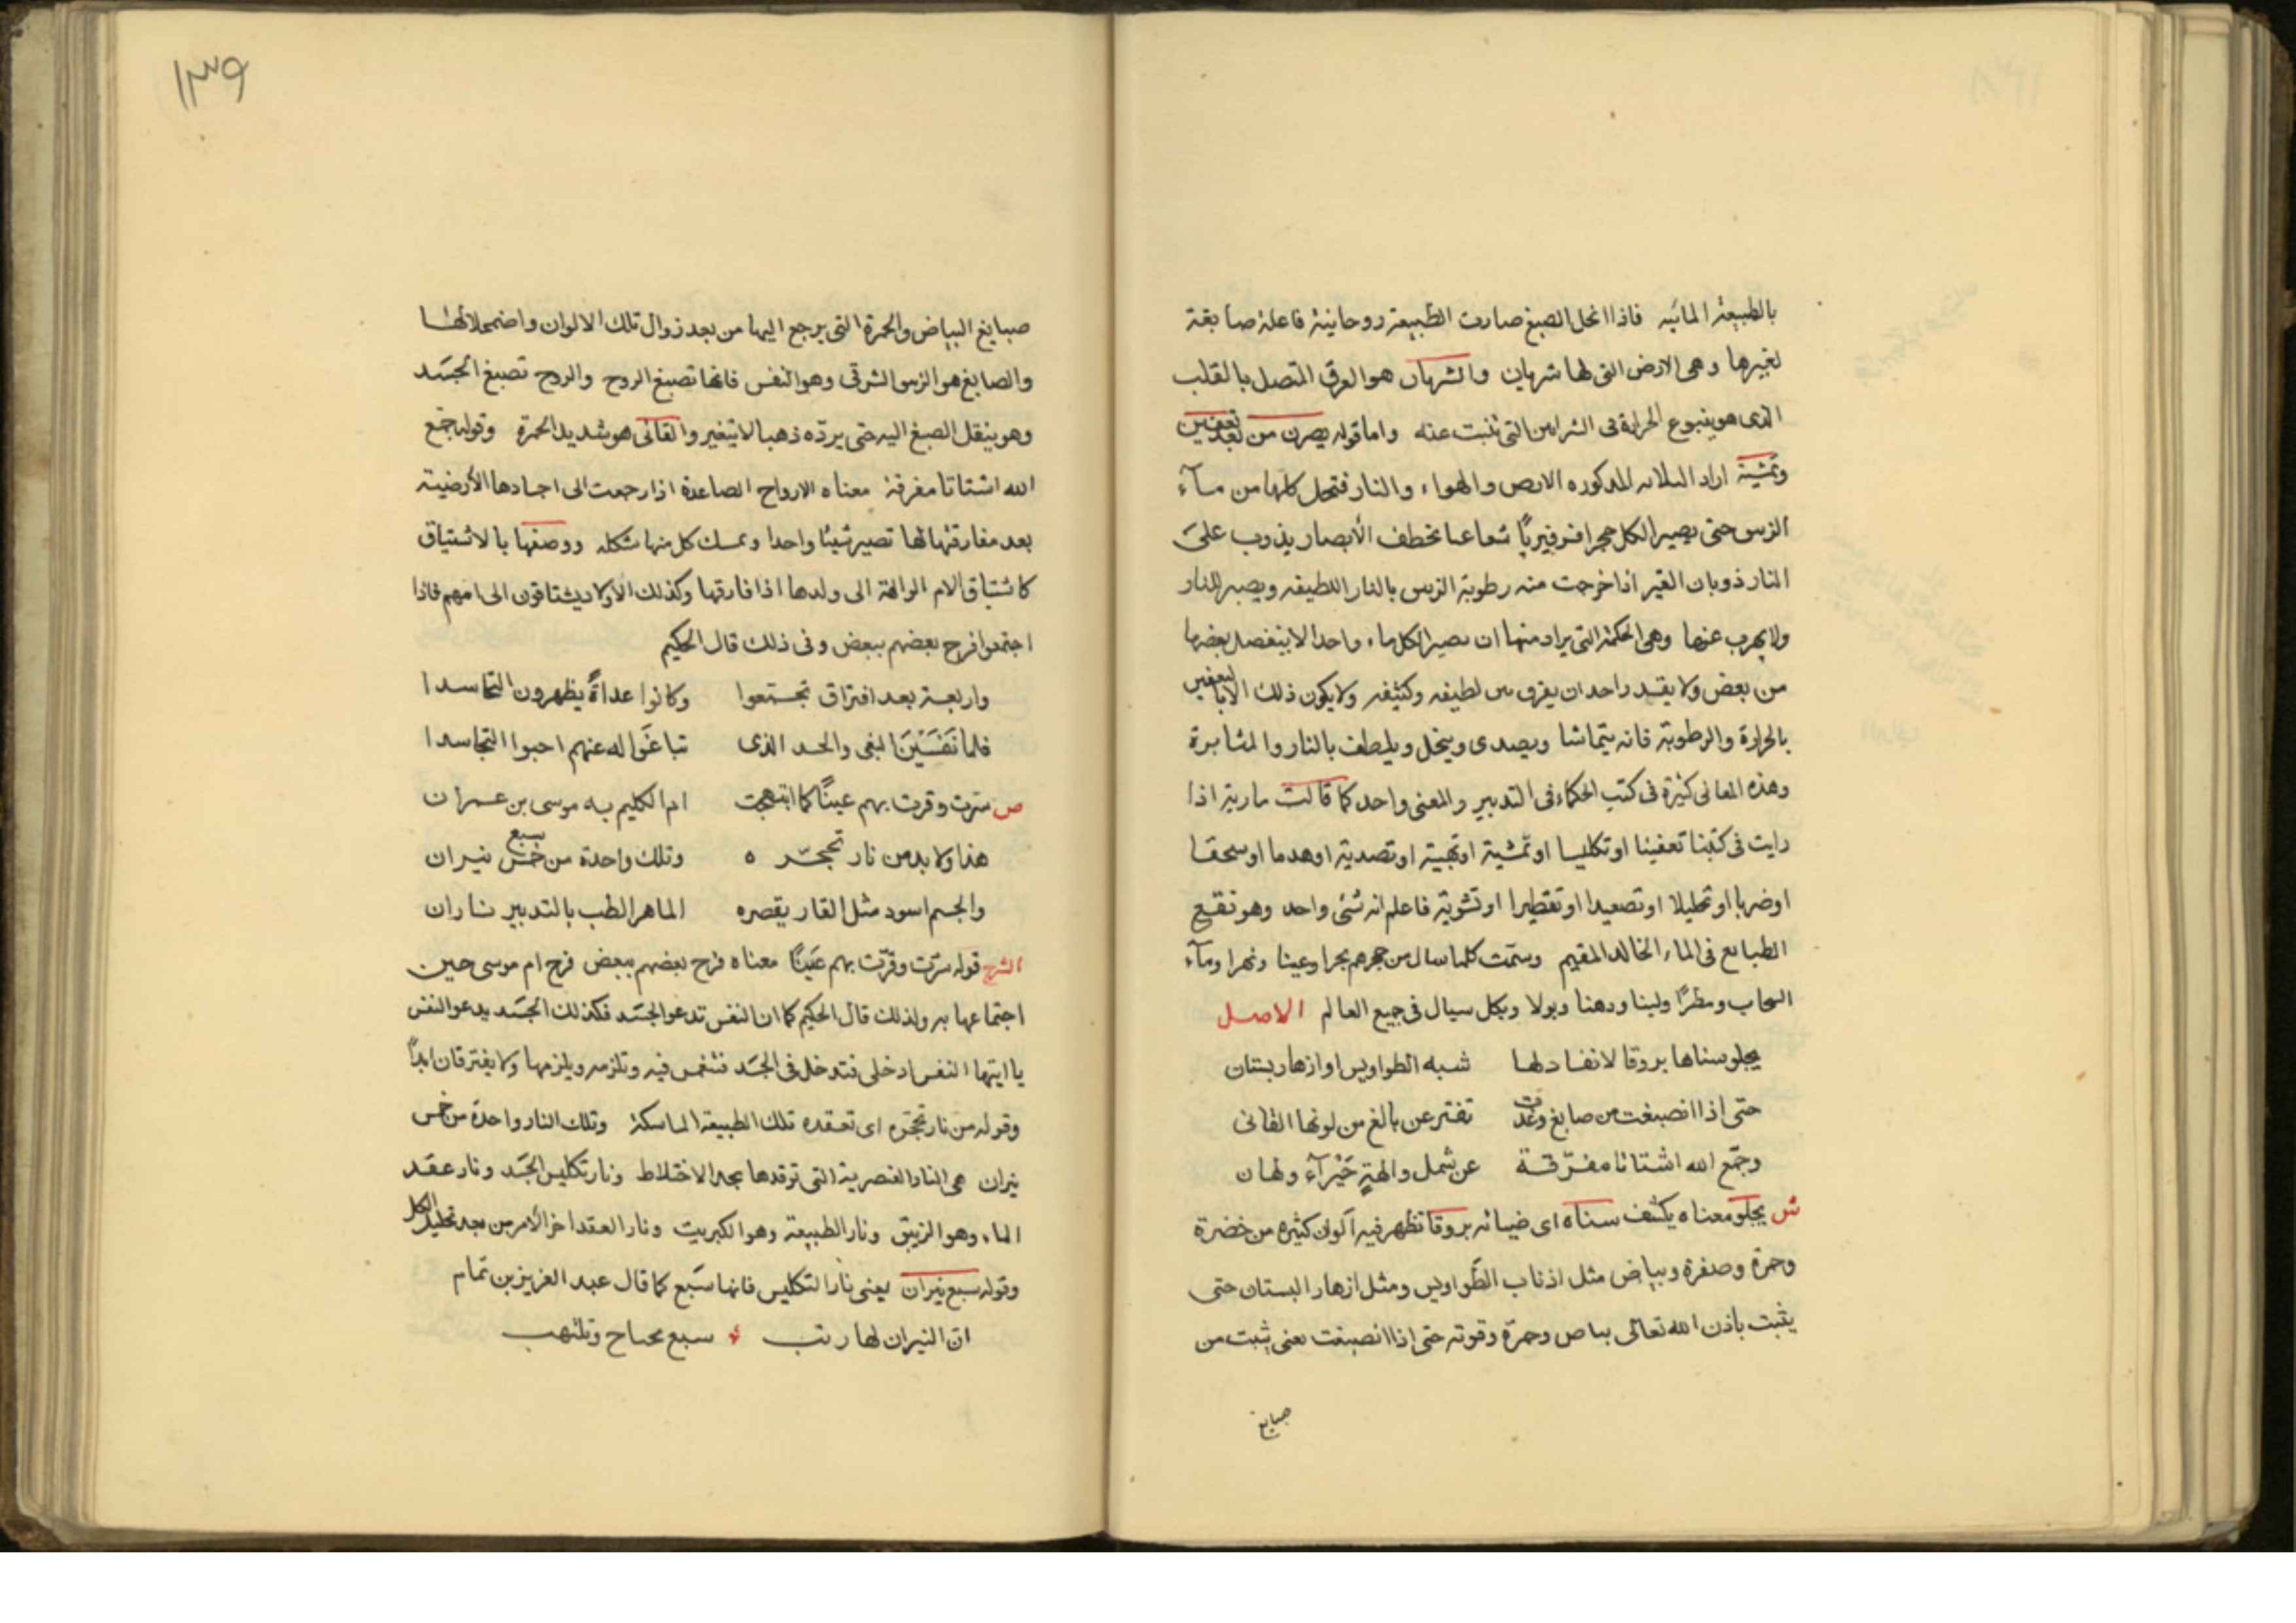 بالطبيعة المائيه فاذا انحل الصبغ صارت الطبيعة روحانية فاعلة صابغة
لغيرها وهى الارض التى لها شريان والشريان هو العرق المتصل بالقلب
الذى هو ينبوع الحرارة فى الشراين التى تنبت عنه واما قوله يصرن من بعد تعفين
وتمشية اراد الثلاثه المذكوره الارض والهواء والنار فتحل كلها من مآء
الزيبق حتى يصير الكل حجرا فرفيريًا شعاعيا يخطف الأبصار يذوب على
النار ذوبان القير اذا خرجت منه رطوبة الزيبق بالنار اللطيفه ويصبر للنار
ولا يهرب عنها وهى الحكمة التى يراد منها ان يصير الكل ماء واحدا لا ينفصل بعضها
من بعض ولا يقدر احد ان يفرق بين لطيفه وكثيفه ولا يكون ذلك الا بالتعفين
بالحرارة والرطوبة فانه يتماشا ويصدى وينحل ويلطف بالنار والمثابرة
وهذه المعانى كثيرة فى كتب الحكماء فى التدبير والمعنى واحد كما قالت مارية اذا
رايت فى كتبنا تعفينا او تكليسا او تمشية او تهبية او تصدية او هدما او سحقا
او ضربا او تحليلا او تصعيدا او تقطيرا او تشوية فاعلم انه شئى واحد وهو نقيع
الطبايع فى الماء الخالد المقيم وسمت كلما سال من حجرهم بحرا وعينا ونهرا ومآء
السحاب ومطرًا ولبنا ودهنا وبولا وبكل سيال فى جميع العالم الاصل
يجلو سناها بروقا لا نفاد لها شبه الطواويس او ازهار بستان
حتى اذا انصبغت من صابغ وغدت تفتر عن بالغ من لونها القانى
وجمّع الله اشتاتا مفرّقة عن شمل والهةٍ حَيْرآء ولهان
ش يجلو معناه يكشف سناه اى ضيائه بروقا تظهر فيه ألوان كثيره من خضرة
وحمرة وصفرة وبياض مثل اذناب الطّواويس ومثل ازهار البستان حتى
يثبت باذن الله تعالى بياض وحمرّة وقوته حتى اذا انصبغت يعنى يثبت من
صبايغ
١٣٩
صبايغ البياض والحمرة التى يرجع اليها من بعد زوال تلك الالوان واضمحلالها
والصابغ هو الزيبق الشرقى وهو النفس فانها تصبغ الروح والروح تصبغ الجسَد
وهو ينقل الصبغ اليه حتى يردّه ذهبا لا يتغير والقانى هو شديد الحمرة وقوله جمّع
الله اشتاتا مفرقة معناه الارواح الصاعدة اذا رجعت الى اجسادها الأرضية
بعد مفارقتها لها تصير شيئا واحدا ويمسك كل منها شكله ووصفها بالاشتياق
كاشتياق الام الوالهة الى ولدها اذا فارقها وكذلك الاولاد يشتاقون الى امهم فاذا
اجتمعوا فرح بعضهم ببعض وفى ذلك قال الحكيم
واربعة بعد افتراق تجمّعوا وكانوا عداةً يظهرون التحاسدا
فلما البغى والحسد الذى تباغَوا له عنهم احبوا التجاسدا
ص سّرت وقرت بهم عينًا كما ابتهجت ام الكليم به موسى بن عمران
هذا ولا بد من نار تحجّره وتلك واحدة من خمس سبع نيران
والجسم اسود مثل القار يقصره الماهر الطب بالتدبير ناران
الشرح قوله سرّت وقرّت بهم عَينًا معناه فرح بعضهم ببعض فرح ام موسى حين
اجتماعها به ولذلك قال الحكيم كما ان النفس تدعو الجسَد فكذلك الجسَد يدعو النفس
يا ايتها النفس ادخلى فتدخل فى الجسَد فتنغمس فيه وتلزمه ويلزمها ولا يفترقان ابدًا
وقوله من نار تحجّره اى تعقده تلك الطبيعة الماسكة وتلك النار واحدة من خمس
نيران هى النار العنصرية التى توقدها بعد الاختلاط ونار تكليس الجسَد ونار عقد
الماء وهو الزيبق ونار الطبيعة وهو الكبريت ونار العقد اخر الأمر من بعد تحليل الكل
وقوله سبع نيران يعنى نار التكليس فانها سبَع كما قال عبد العزيز بن تمام
انّ النيران لها رتب سبع وتلتهب